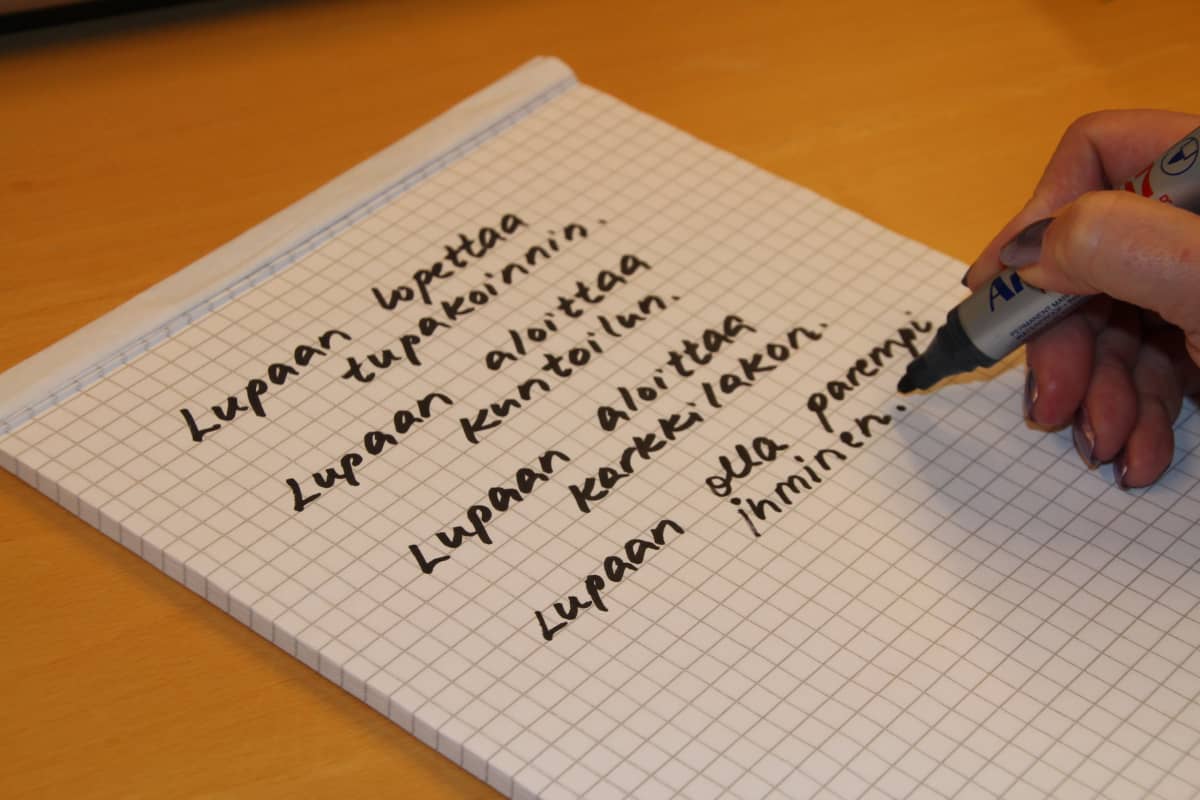 Lupaan lopettaa
tupakoinnin.
Lupaan aloittaa
kuntoilun.
Lupaan aloittaa
karkkilakon.
Lupaan olla parempi
ihminen.